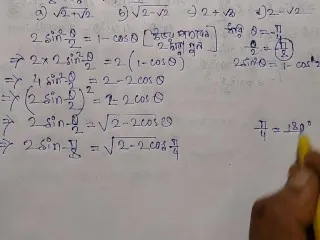 a) √2+√2 b) √2-√2 c) 2+√2 d) 2-√2
2sin²θ/2 = 1-cosθ
ধরি θ = π/4
⇒ 2×2sin²θ/2 = 2(1-cosθ)
θ/2 = π/8
⇒ 4sin²θ/2 = 2-2cosθ
⇒ (2sin θ/2)² = 2-2cosθ
⇒ 2sin θ/2 = √2-2cosθ
⇒ 2sin π/8 = √2-2cos π/4
π/4 = 180°